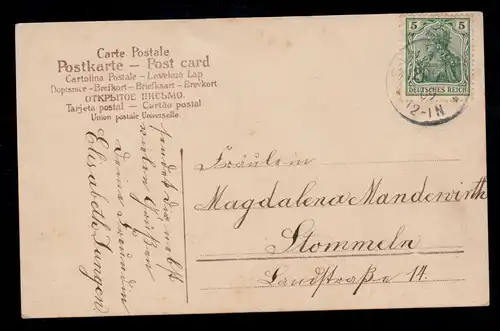 Carte Postale
Postkarte – Post card
Cartolina Postale – Levelezö Lap
Dopisnice – Brefkort – Briefkaart – Brevkort
ОТКРЫТОЕ ПИСЬМО.
Tarjeta postal – Cartão postal
Union postale Universelle.
5 5
DEUTSCHES REICH
12-1N
sendet dir nebst
vielen Grüßen
Deine Freundin
Elisabeth Jungen
Fräulein
Magdalena Manderwirth
Stommeln
Landstraße 14.